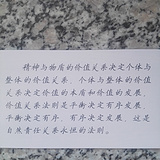 精神与物质的价值关系决定个体与
整体的价值关系,个体与整体的价值
关系决定价值的本质和价值的发展。
价值关系法则是平衡决定有序发展,
平衡决定有序,有序决定发展,这是
自然责任关系永恒的法则。